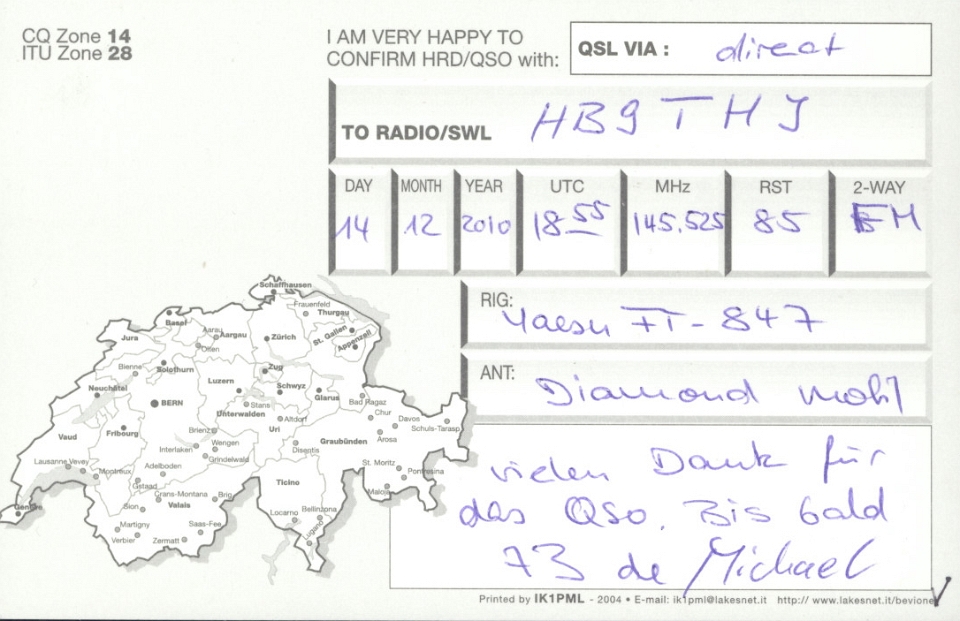 CQ Zone 14
ITU Zone 28
I AM VERY HAPPY TO
CONFIRM HRD/QSO with:
QSL VIA : direct
TO RADIO/SWL HB9THJ
DAY MONTH YEAR UTC MHz RST 2-WAY
14 12 2010 18 55 145.525 85 FM
RIG: Yaesu FT-847
ANT: Diamond mobil
vielen Dank für
das QSO. Bis bald
73 de Michael
Schaffhausen
Frauenfeld
Thurgau
Basel
Jura
Aarau
Aargau
Olten
Zürich
St. Gallen
Appenzell
Bienne
Solothurn
Zug
Neuchâtel
Luzern
Schwyz
Glarus
BERN
Stans
Unterwalden
Bad Ragaz
Chur
Davos
Schuls-Tarasp
Altdorf
Uri
Vaud
Fribourg
Brienz
Wengen
Interlaken
Grindelwald
Disentis
Graubünden
Arosa
Lausanne
Vevey
Montreux
Adelboden
Gstaad
St. Moritz
Pontresina
Maloja
Ticino
Crans-Montana
Brig
Sion
Valais
Genève
Locarno
Bellinzona
Lugano
Martigny
Saas-Fee
Verbier
Zermatt
Printed by IK1PML - 2004 • E-mail: ik1pml@lakesnet.it http:// www.lakesnet.it/bevione